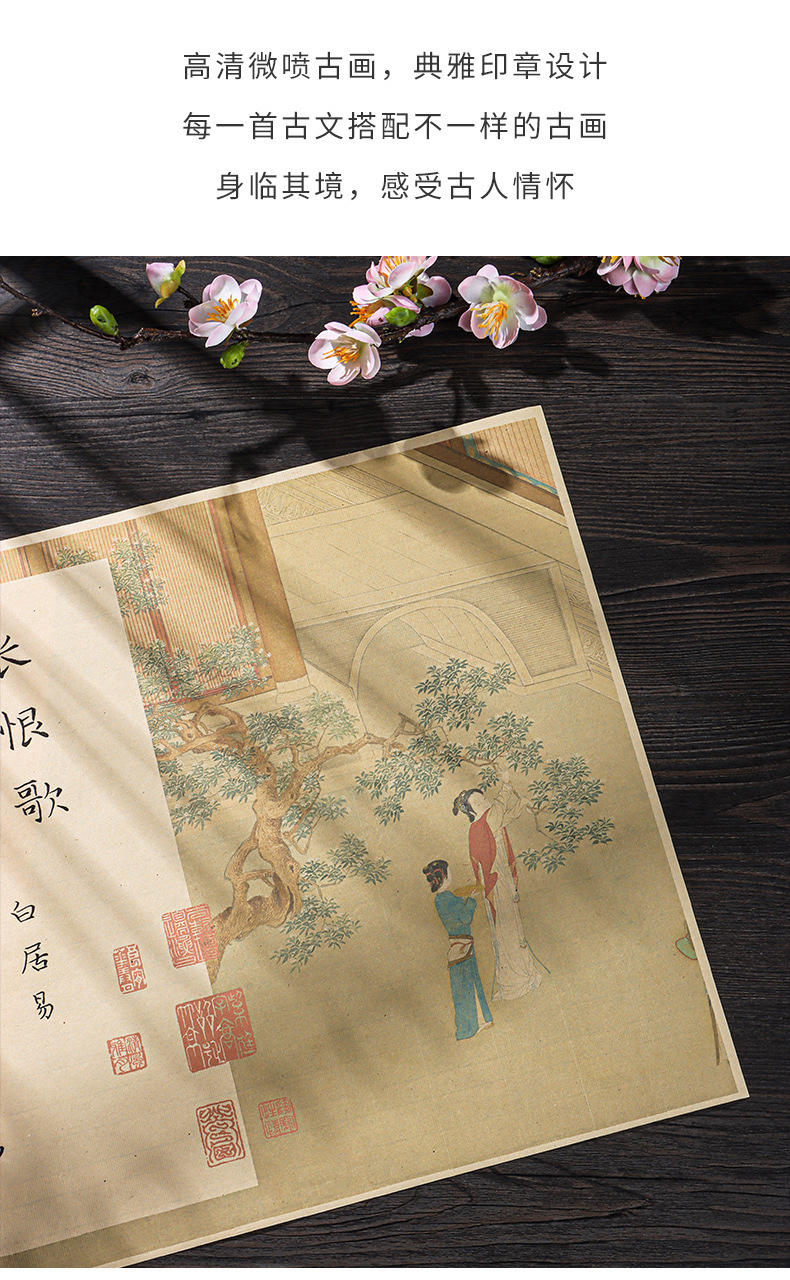 高清微喷古画，典雅印章设计
每一首古文搭配不一样的古画
身临其境，感受古人情怀
长恨歌
白居易